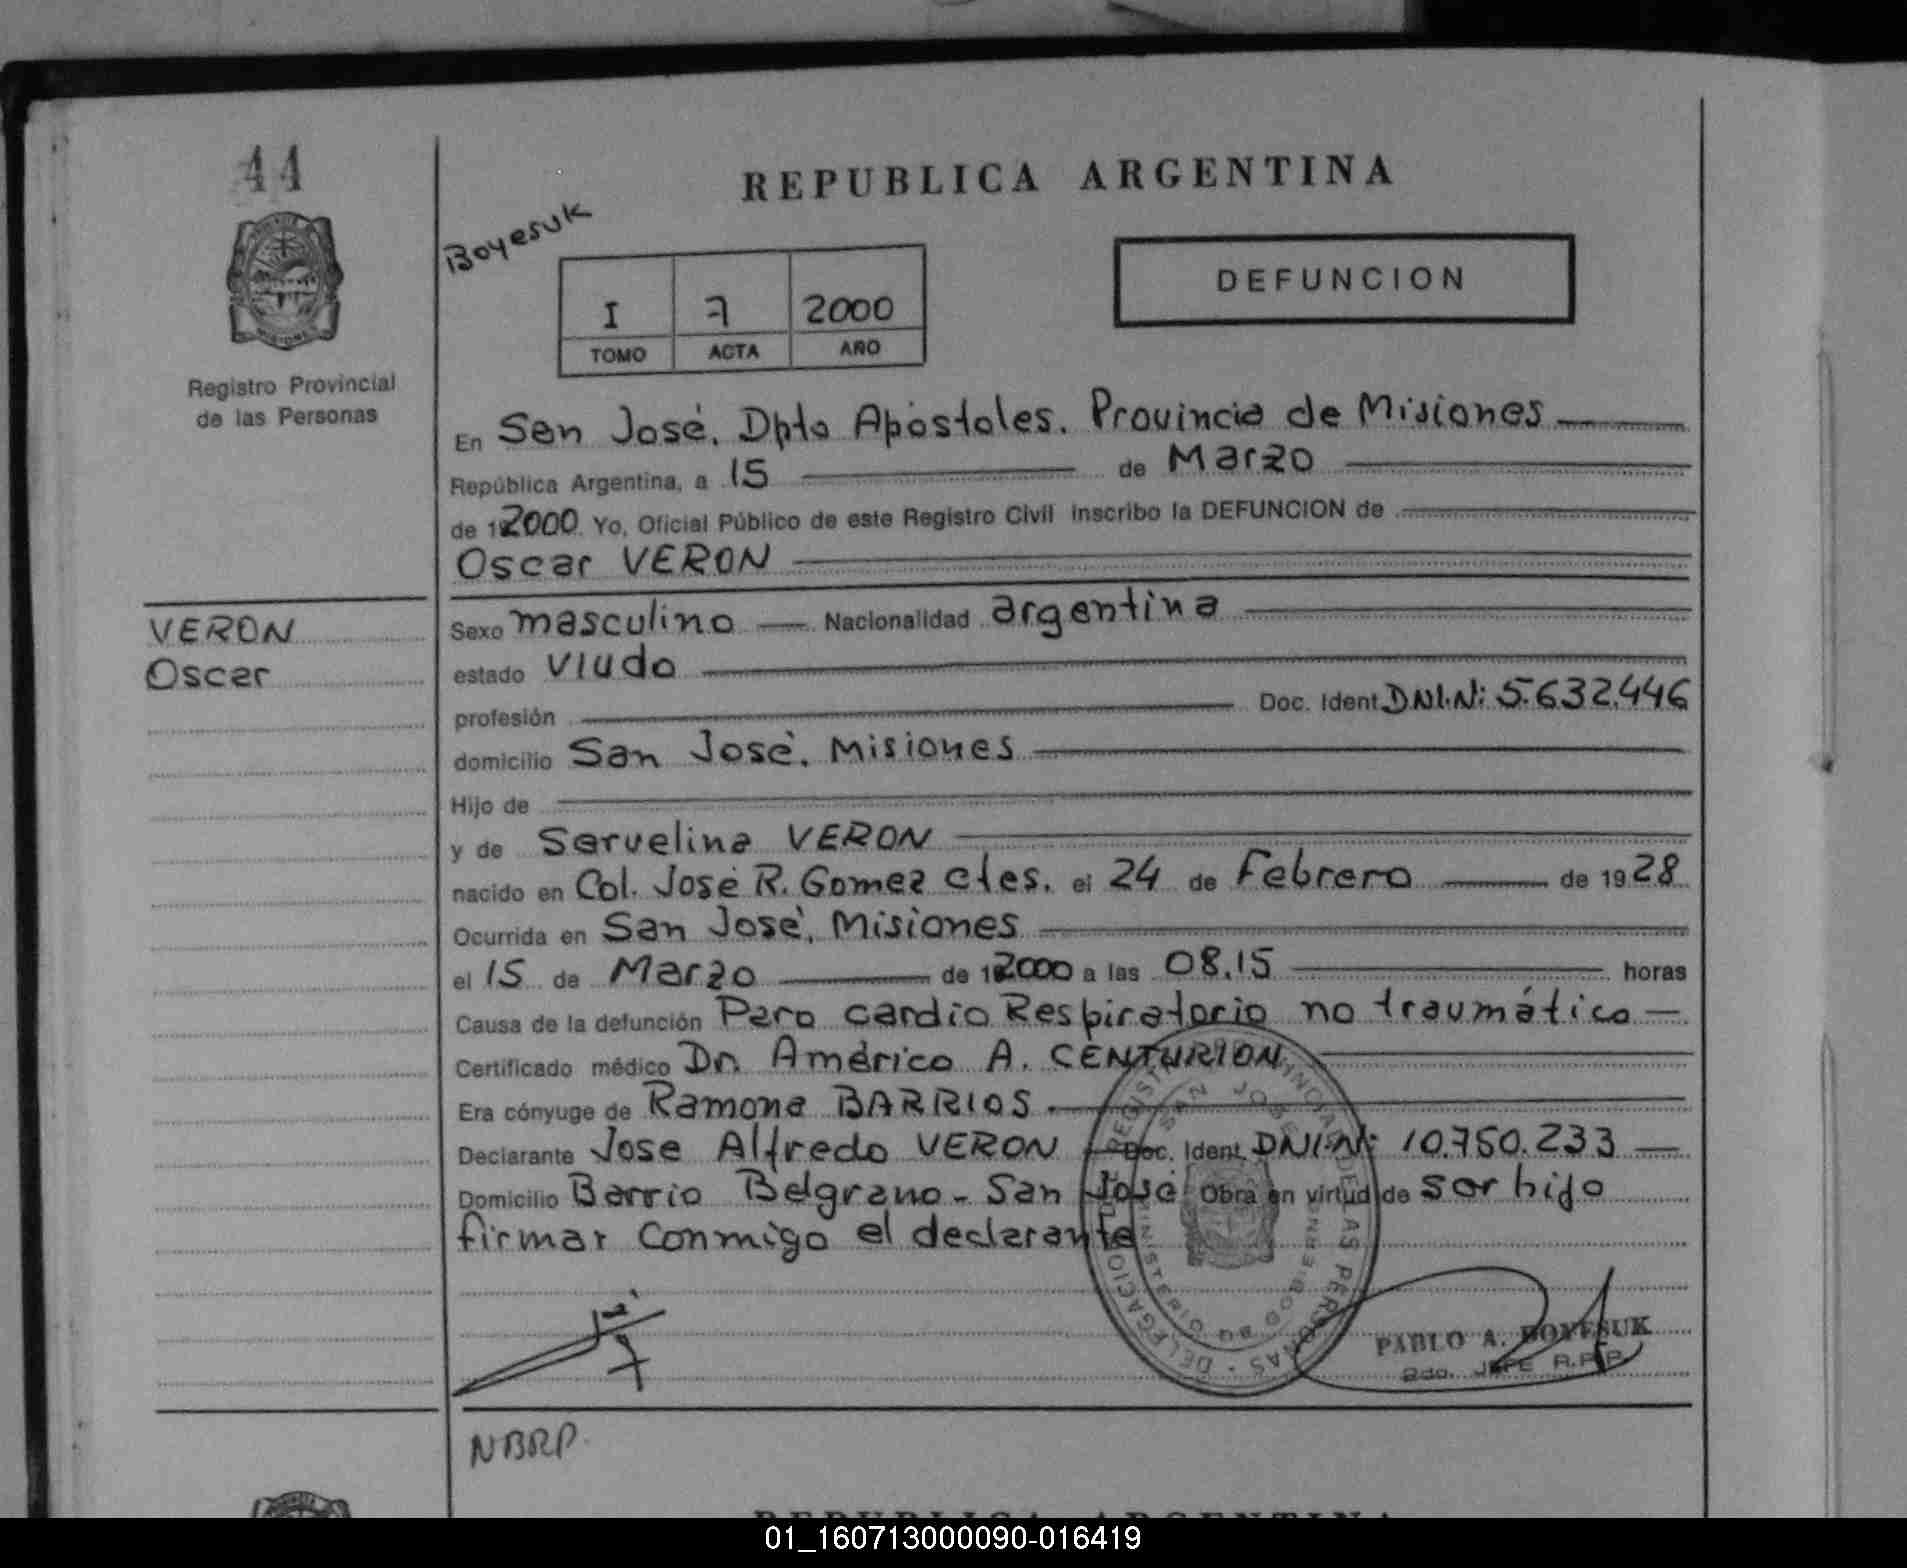 44
REPUBLICA ARGENTINA
Boyesuk
DEFUNCION
I 7 2000
TOMO ACTA AÑO
Registro Provincial
de las Personas
En San José, Dpto Apóstoles. Provincia de Misiones
República Argentina, a 15 de Marzo
de 12000. Yo, Oficial Público de este Registro Civil inscribo la DEFUNCION de
Oscar VERON
VERON
Oscar
Sexo masculino Nacionalidad argentina
estado viudo
profesión Doc. Ident. DNI.Nº 5.632.446
domicilio San José, Misiones
Hijo de
y de Servelina VERON
nacido en Col. José R. Gomez ctes. el 24 de Febrero de 1928
Ocurrida en San José, Misiones
el 15 de Marzo de 12000 a las 08.15 horas
Causa de la defunción Paro cardio Respiratorio no traumático
Certificado médico Dr. Américo A. CENTURION
Era cónyuge de Ramona BARRIOS.
Declarante Jose Alfredo VERON Doc. Ident. DNI.Nº 10.750.233
Domicilio Barrio Belgrano - San José Obra en virtud de sor hijo
firmar conmigo el declarante
DELEGACION REGISTRO PROVINCIAL DE LAS PERSONAS
SAN JOSE
MINISTERIO DE GOBIERNO
PABLO A. BOYESUK
2do. JEFE R.P.P.
NBRP.
REPUBLICA ARGENTINA
01_160713000090-016419